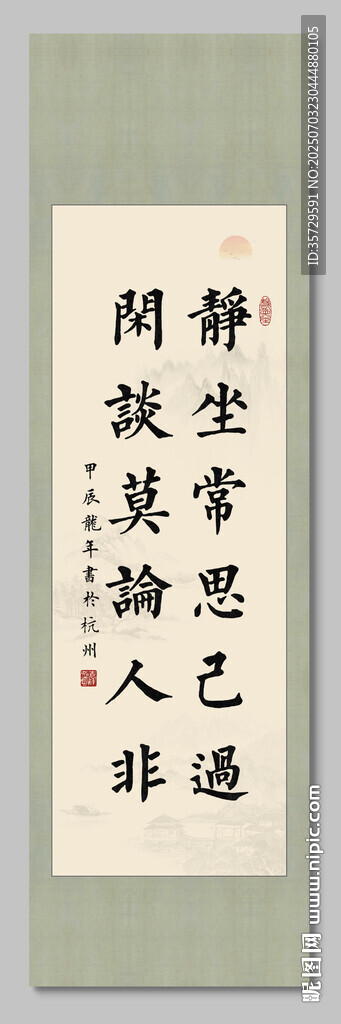 靜坐常思己過
閑談莫論人非
甲辰龍年書於杭州
ID:35729591 NO:20250703230444880105
昵图网 www.nipic.com